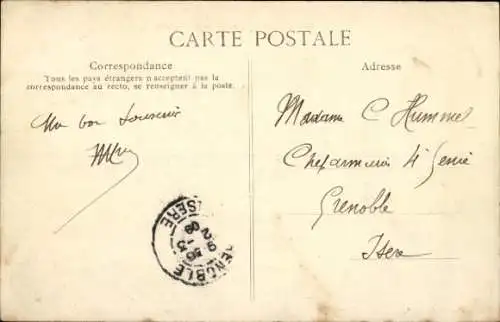 CARTE POSTALE
Correspondance
Tous les pays étrangers n'acceptent pas la
correspondance au recto, se renseigner à la poste.
Un bon souvenir
Adresse
Madame C Hummel
Chef armurier 4 Génie
Grenoble
Isère
GRENOBLE
ISERE